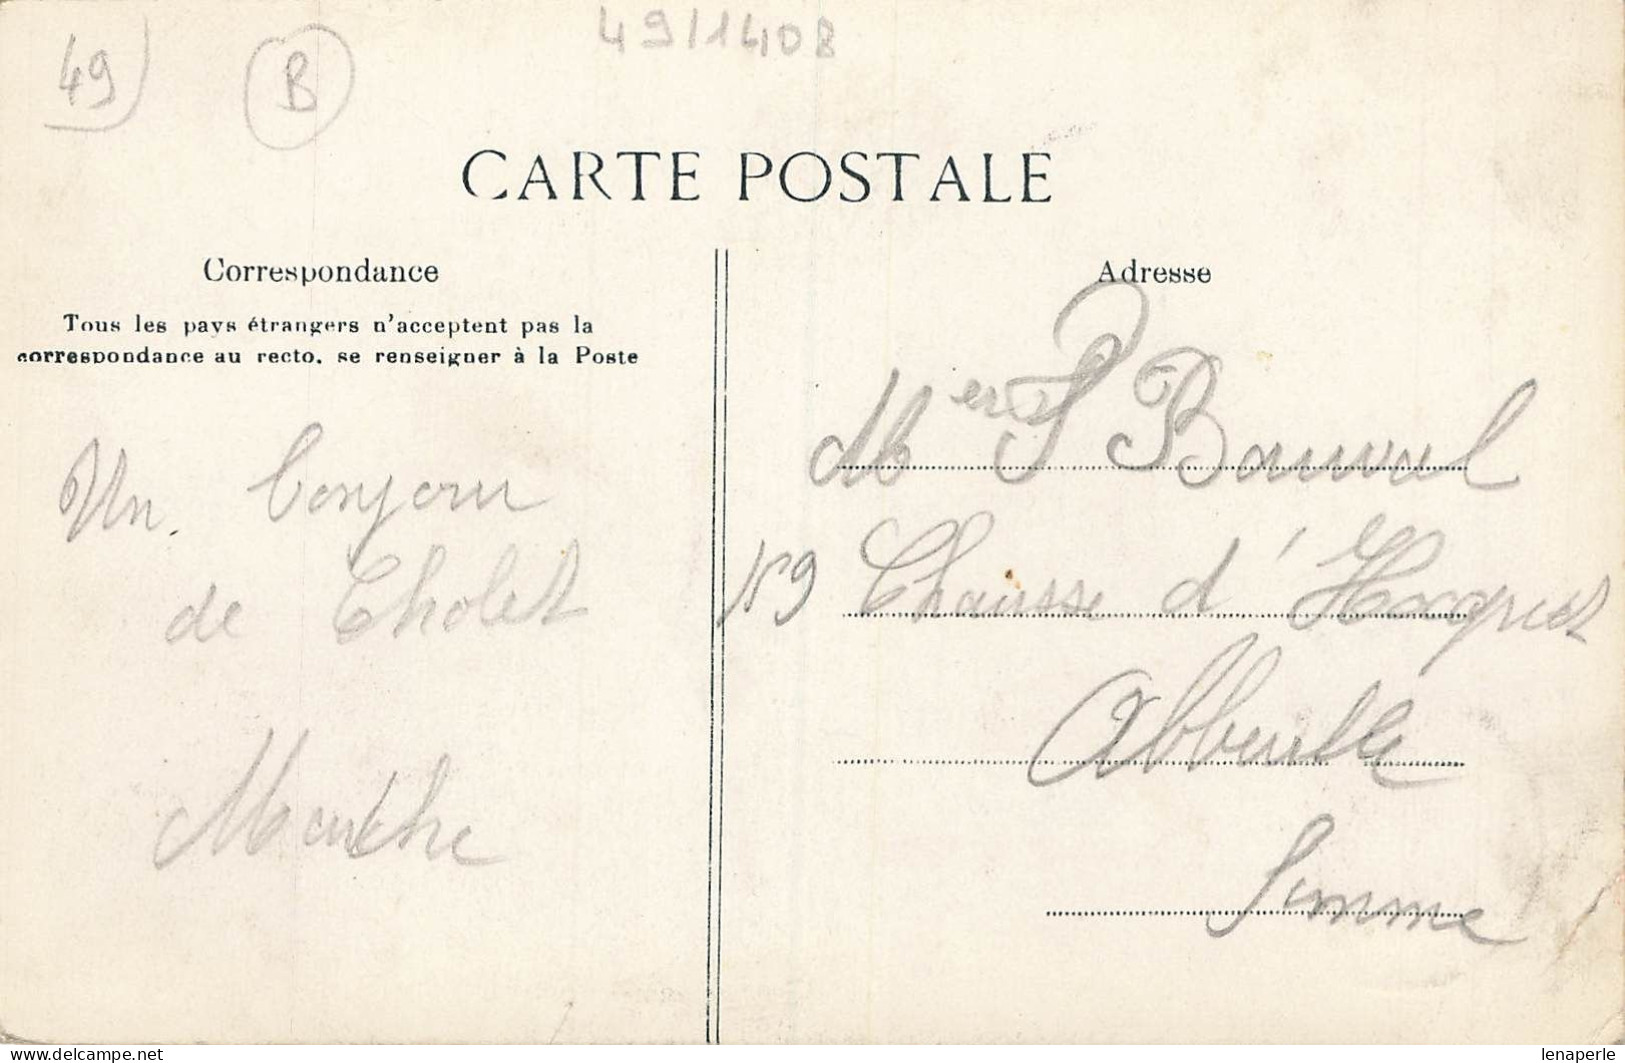 49
B
49/1408
CARTE POSTALE
Correspondance
Tous les pays étrangers n'acceptent pas la
correspondance au recto, se renseigner à la Poste
Un bonjour
de Cholet
Marthe
Adresse
P Bauval
159 Chausse d'Hocquet
Abbeville
Somme
lenaperle